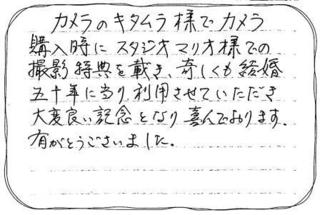 カメラのキタムラ様でカメラ
購入時にスタジオマリオ様での
撮影特典を戴き、奇しくも結婚
五十年に当り、利用させていただき
大変良い記念となり喜んでおります。
有がとうございました。